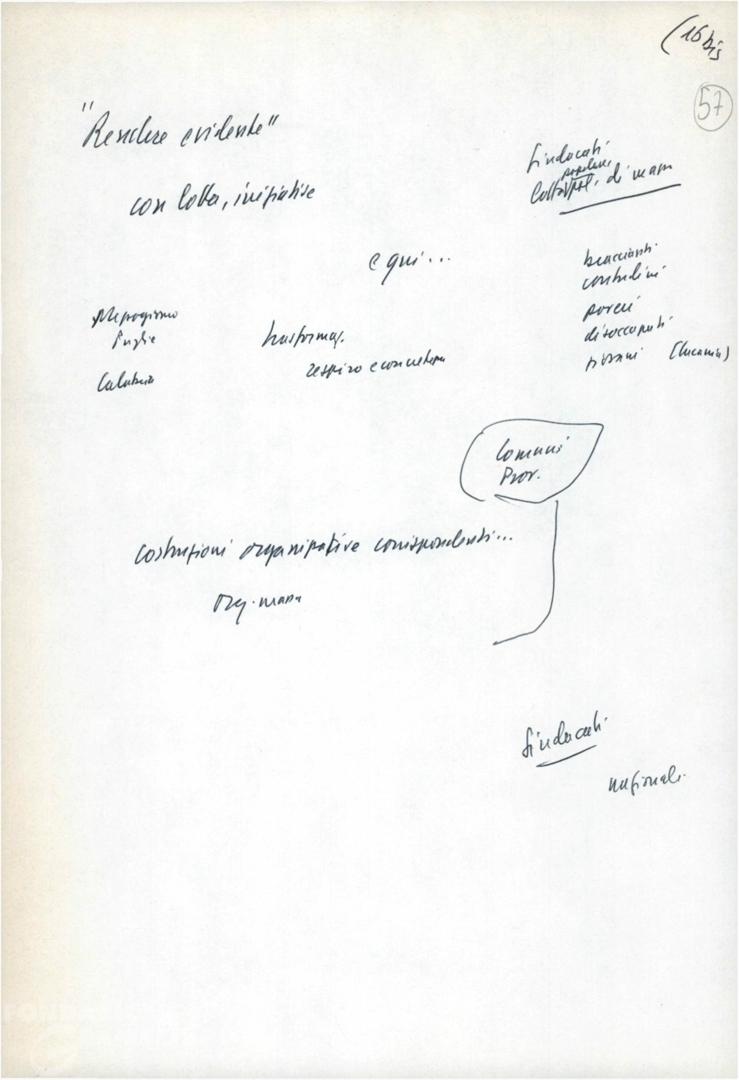 (16 bis
57
"Rendere evidente"
con lotta, iniziative
Sindacati
popolari
lotta di massa
e qui...
braccianti
contadini
poveri
disoccupati
giovani (Lucania)
Puglie
Calabria
trasformaz.
respiro e concretezza
Comuni
Prov.
costruzioni organizzative corrispondenti...
Org. massa
Sindacati
nazionali